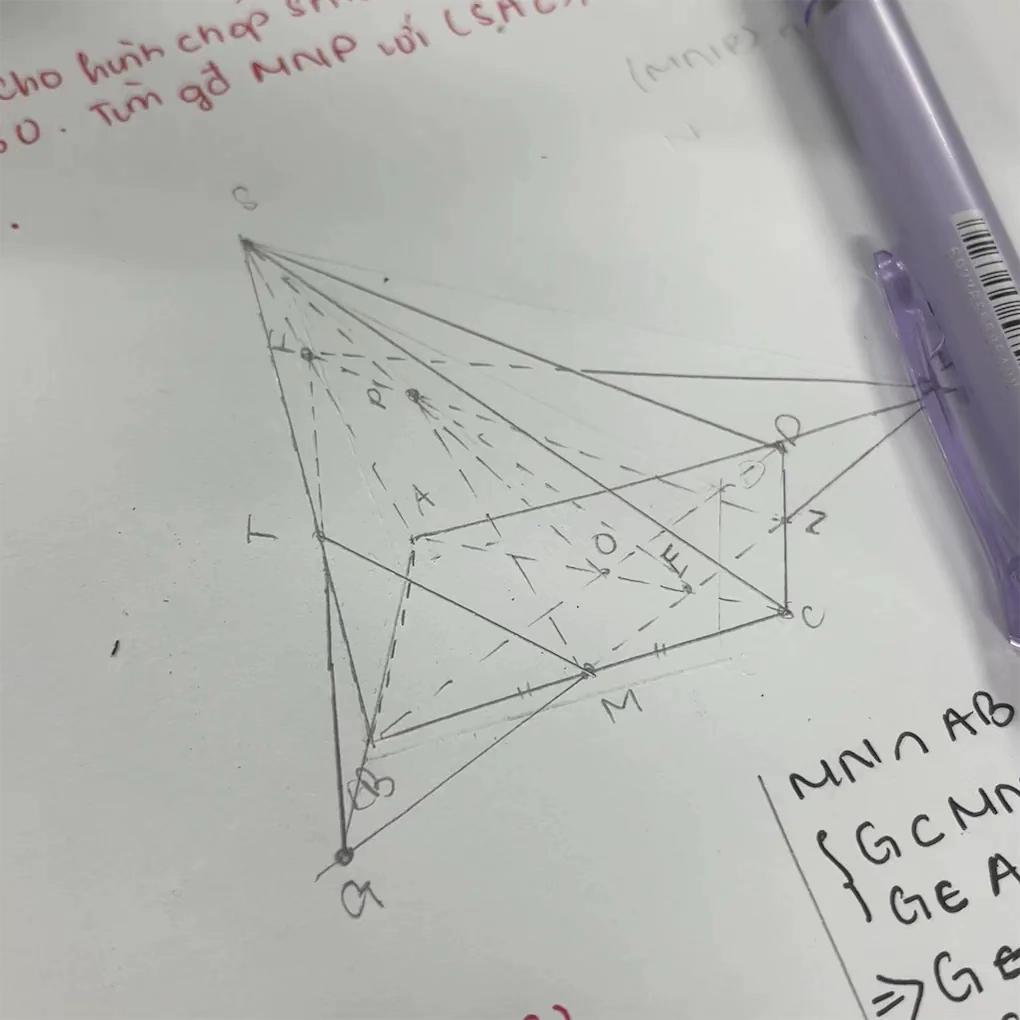 Cho hình chóp
SO. Tìm gđ MNP với (SAC),
(MNP)
N
S
F
P
H
D
A
T
O
E
N
C
M
B
G
MN ∩ AB
{ G ⊂ MN
G ∈ A
⇒ G ∈